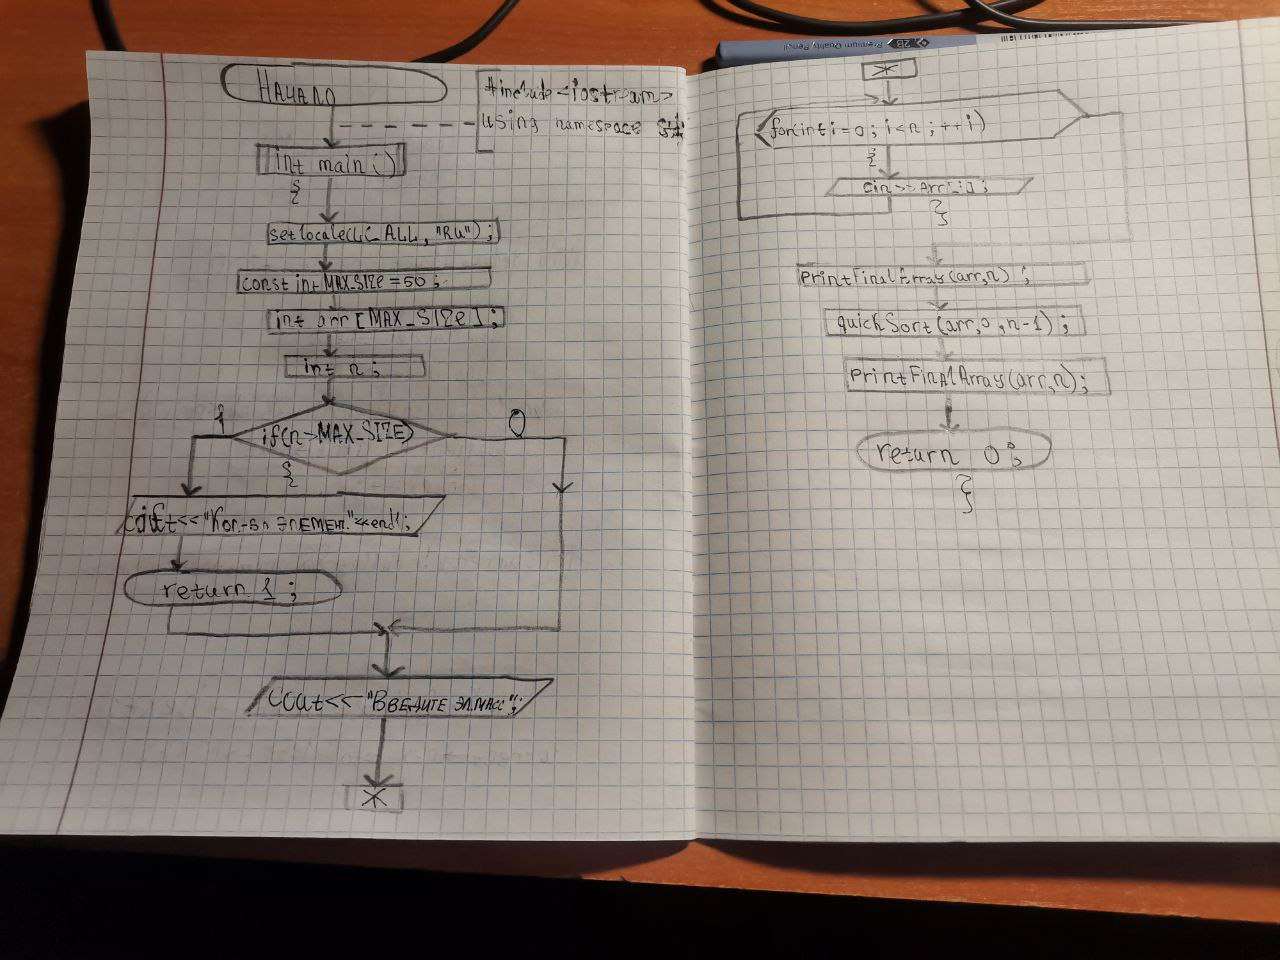 НАЧАЛО
#include <iostream>
using namespace std
int main()
{
setlocale(LC_ALL, "RU");
const int MAX_SIZE = 50;
int arr[MAX_SIZE];
int n;
1
if(n>MAX_SIZE)
0
{
cout<<"Кол-во элемент."<<endl;
return 1;
cout<<"Введите эл.масс";
*
*
for(int i=0; i<n; ++i)
{
cin>>Arr[i];
}
printFinalArray(arr,n);
quickSort(arr,0,n-1);
printFinalArray(arr,n);
return 0;
}
2B Premium Quality Pencil